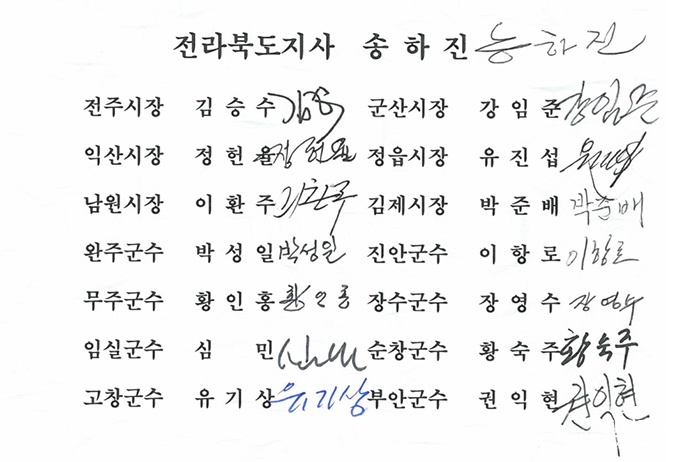 전라북도지사 송 하 진 송하진
전주시장 김 승 수 군산시장 강 임 준 강임준
익산시장 정 헌 율 정헌율 정읍시장 유 진 섭
남원시장 이 환 주 이환주 김제시장 박 준 배 박준배
완주군수 박 성 일 박성일 진안군수 이 항 로 이항로
무주군수 황 인 홍 황인홍 장수군수 장 영 수 장영수
임실군수 심 민 순창군수 황 숙 주 황숙주
고창군수 유 기 상 유기상 부안군수 권 익 현 권익현